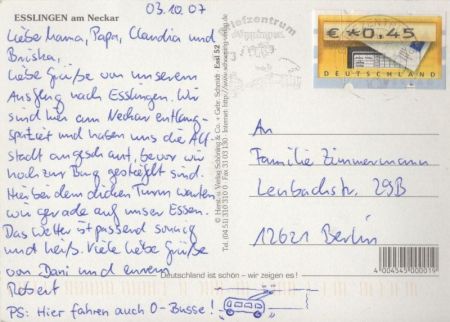 ESSLINGEN am Neckar
03.10.07
Liebe Mama, Papa, Claudia und
Briska,
liebe Grüße von unserem
Ausflug nach Esslingen. Wir
sind hier am Neckar entlang-
spaziert und haben uns die Alt-
stadt angeschaut, bevor wir
hoch zur Burg gestiefelt sind.
Hier bei dem dicken Turm warten
wir gerade auf unser Essen.
Das Wetter ist passend sonnig
und heiß. Viele liebe Grüße
von Dani und eurem
Robert
PS: Hier fahren auch O-Busse!
© Herst. u. Verlag Schöning & Co + Gebr. Schmidt
Essl 52
Tel. (04 51) 310 310 · Fax 31 03 130 · Internet: http://www.schoening-verlag.de
Briefzentrum
€*0,45
DEUTSCHLAND
An
Familie Zimmermann
Lenbachstr. 29B
12621 Berlin
4 004545 000019
Deutschland ist schön – wir zeigen es!